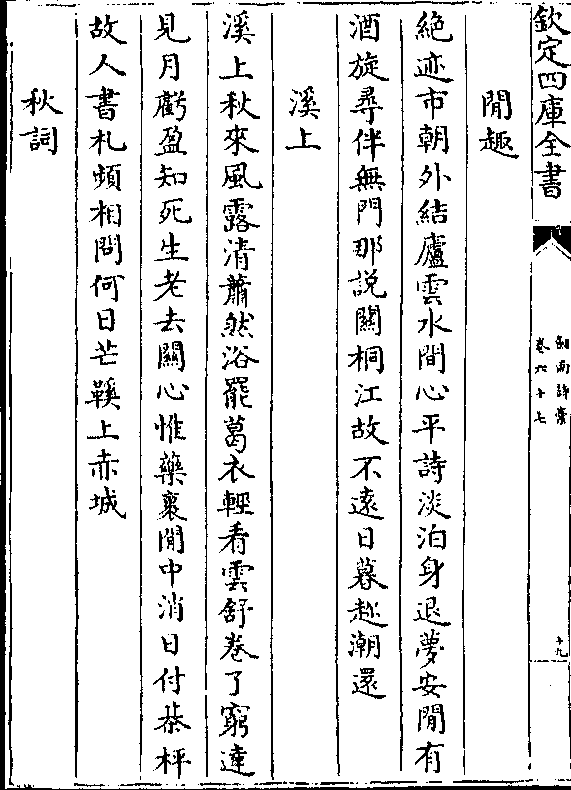 欽定四庫全書
劍南詩稾
卷六十七
十九
閒趣
絶迹市朝外結廬雲水間心平詩淡泊身退夢安閒有
酒旋尋伴無門那説關桐江故不遠日暮趂潮還
溪上
溪上秋來風露清蕭然浴罷葛衣輕看雲舒卷了窮達
見月虧盈知死生老去關心惟藥裹閒中消日付棊枰
故人書札頻相問何日芒鞵上赤城
秋詞